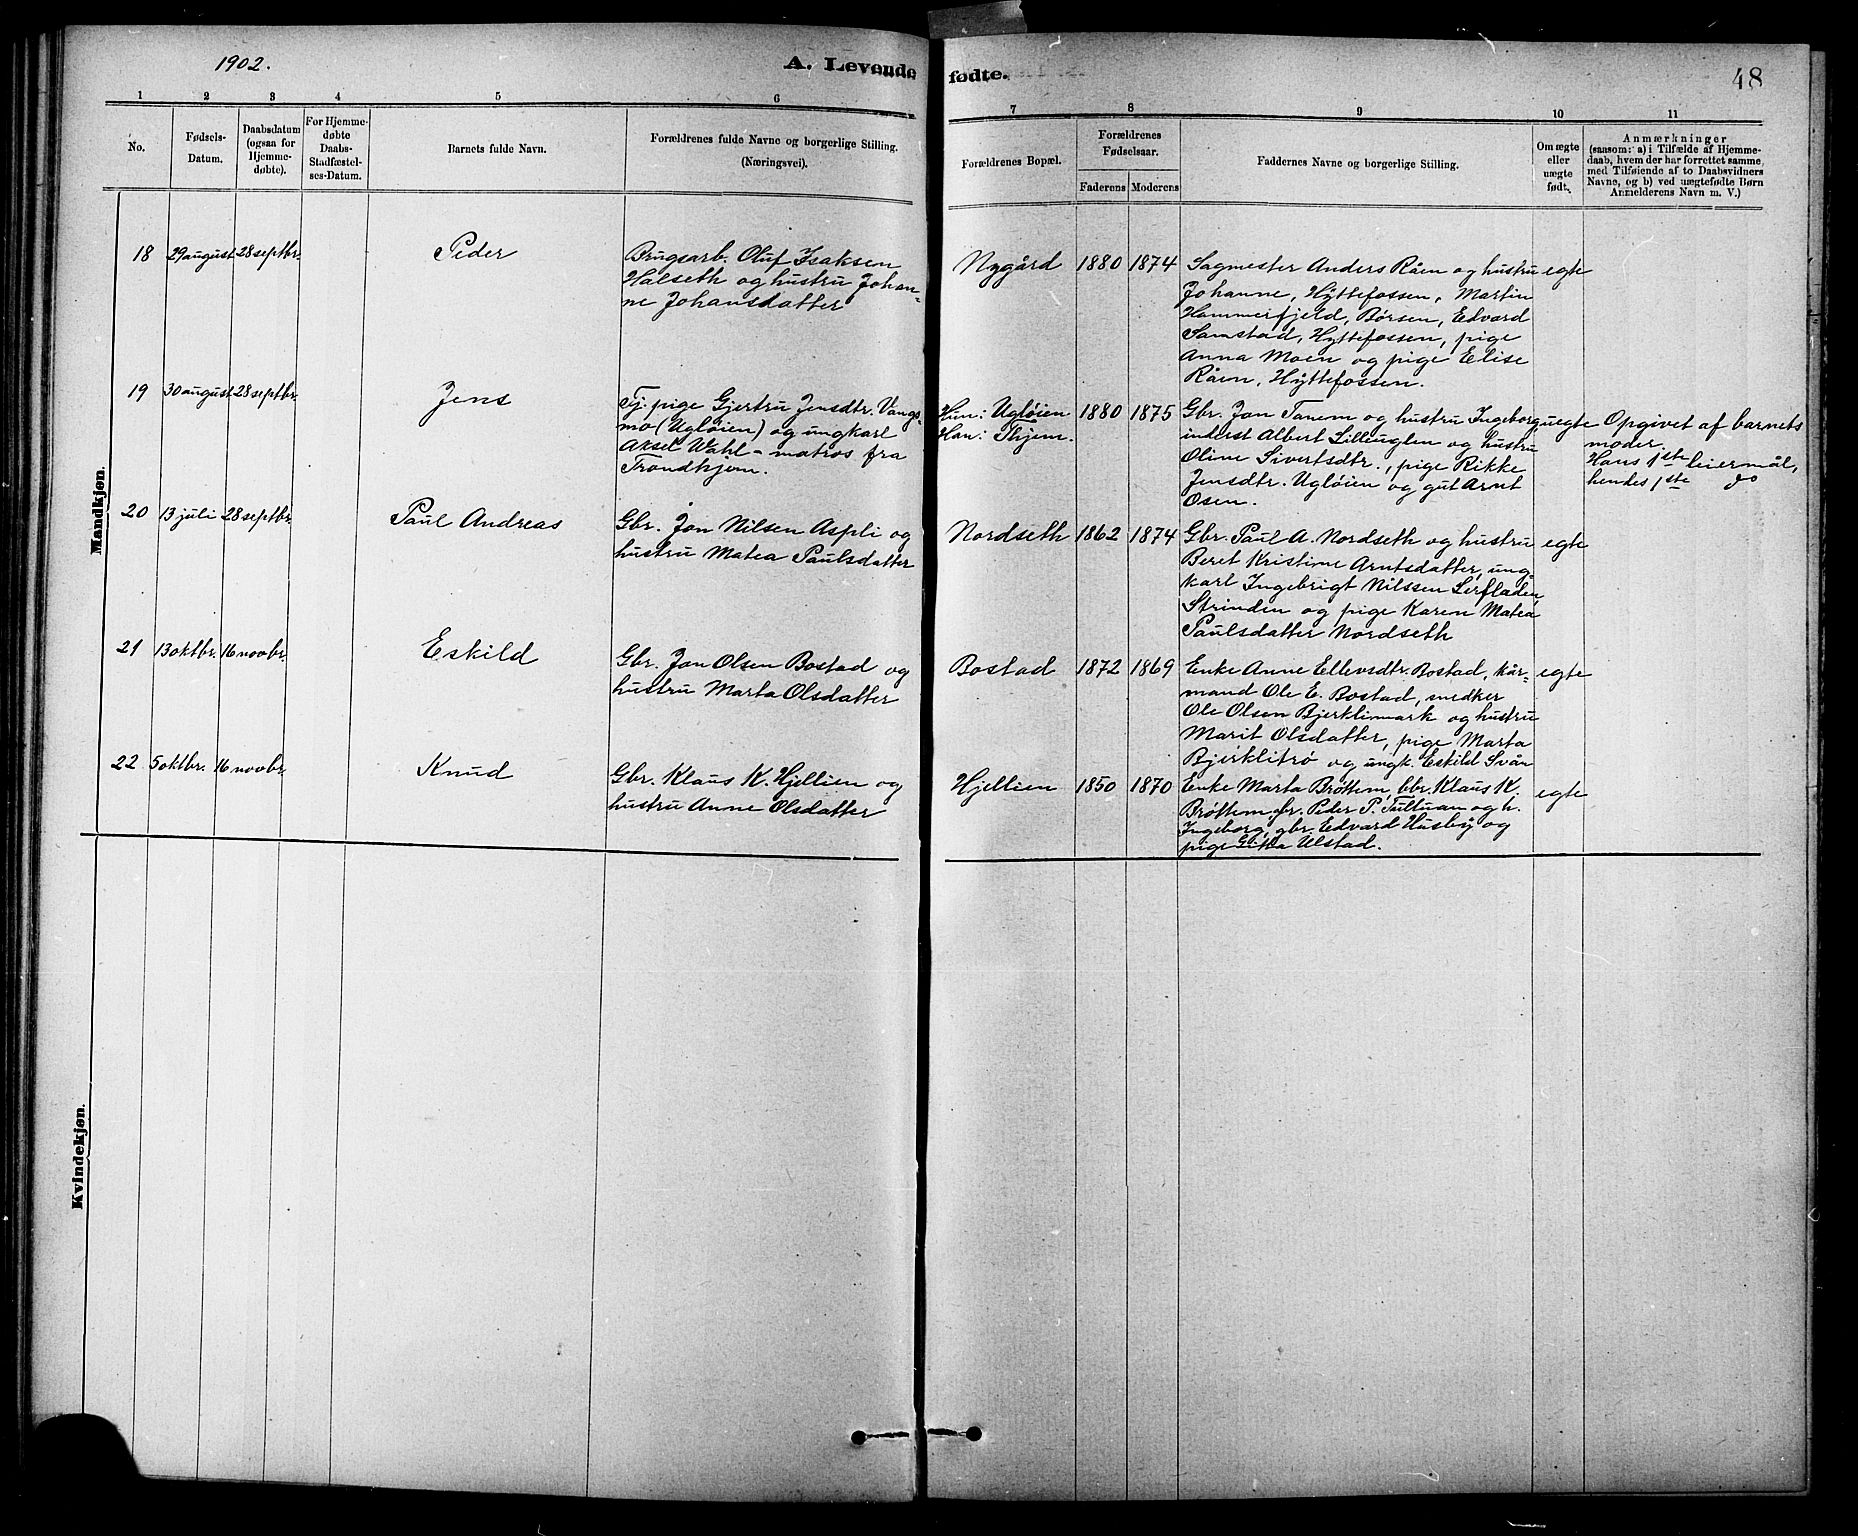 1902.
A. Levende fødte.
48
1 2 3 4 5 6 7 8 9 10 11
No.
Fødsels-
Datum.
Daabsdatum
(ogsaa for
Hjemme-
døbte).
For Hjemme-
døbte
Daabs-
Stadfæstel-
ses-Datum.
Barnets fulde Navn.
Forældrenes fulde Navne og borgerlige Stilling.
(Næringsvei).
Forældrenes Bopæl.
Forældrenes
Fødselsaar.
Faderens Moderens
Faddernes Navne og borgerlige Stilling.
Om ægte
eller
uægte
født.
Anmærkninger
(saasom: a) i Tilfælde af Hjemme-
daab, hvem der har forrettet samme,
med Tilføiende af to Daabsvidners
Navne, og b) ved uægtefødte Børn
Anmelderens Navn m. V.)
Mandkjøn.
18 29 august 28 septbr. Peder
Brugsarb. Oluf Isaksen
Halseth og hustru Johan-
ne Johansdatter
Nygård 1880 1874
Sagmester Anders Råen og hustru
Johanne, Hyttefossen, Martin
Hammerfjeld, Børsen, Edvard
Samstad, Hyttefossen, pige
Anna Moen og pige Elise
Råen, Hyttefossen.
egte
19 30 august 28 septbr. Jens
Tj. pige Gjertru Jensdtr. Vangs-
mo (Ugløien) og ungkarl
Aksel Wahl - matros fra
Trondhjem.
Hun: Ugløien
Han: Thjem.
1880 1875
Gbr. Jon Tanem og hustru Ingeborg,
inderst Albert Lilleuglen og hustru
Oline Sivertsdtr., pige Rikke
Jensdtr. Ugløien og gut Arnt
Osen.
uegte
Opgivet af barnets
moder.
Hans 1ste leiermål,
hendes 1ste do
20 13 juli 28 septbr. Paul Andreas
Gbr. Jon Nilsen Aspli og
hustru Matea Paulsdatter
Nordseth 1862 1874
Gbr. Paul A. Nordseth og hustru
Beret Kristine Arntsdatter, ung-
karl Ingebrigt Nilssen Lerfladen,
Strinden og pige Karen Matea
Paulsdatter Nordseth
egte
21 13 oktbr. 16 novbr. Eskild
Gbr. Jon Olsen Bostad og
hustru Marta Olsdatter
Bostad 1872 1869
Enke Anne Ellevsdtr. Bostad, kår-
mand Ole E. Bostad, snedker
Ole Olsen Bjerklimark og hustru
Marit Olsdatter, pige Marta
Bjerklitrø og ungk. Eskild Svån
egte
22 5 oktbr. 16 novbr. Knud
Gbr. Klaus K. Hjellien og
hustru Anne Olsdatter
Hjellien 1850 1870
Enke Marta Brøttem, bbr. Klaus K.
Brøttem, br. Peder P. Tulluan og h.
Ingeborg, gbr. Edvard Husby og
pige Gitta Ulstad.
egte
Kvindekjøn.